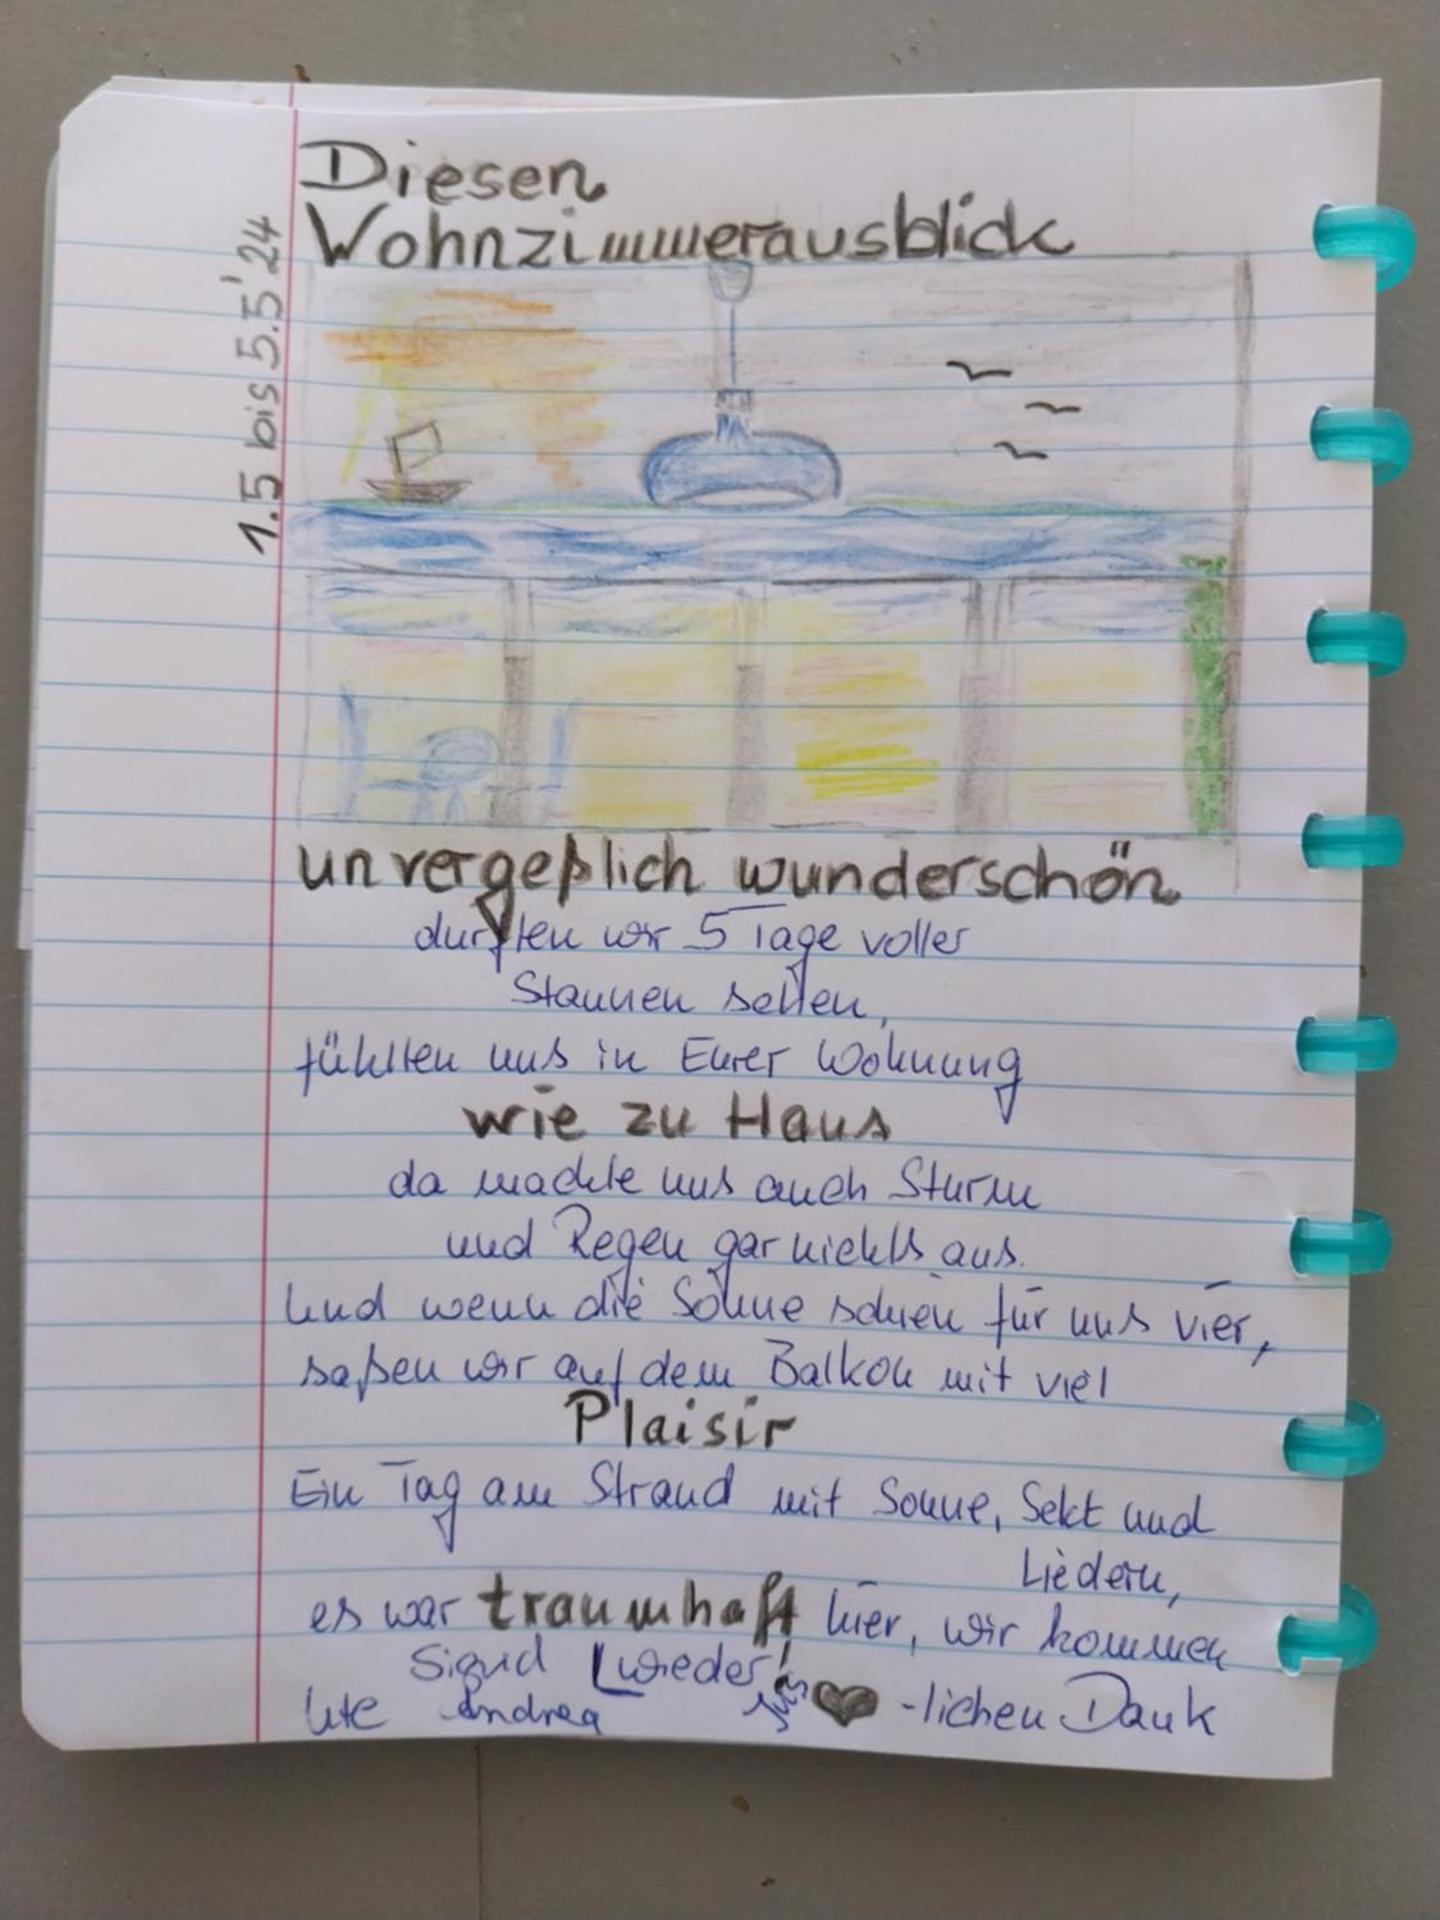 Diesen
Wohnzimmerausblick
1.5 bis 5.5'24
unvergeßlich wunderschön
durften wir 5 Tage voller
Staunen sehen,
fühlten uns in Eurer Wohnung
wie zu Haus
da machte uns auch Sturm
und Regen gar nichts aus.
Und wenn die Sonne schien für uns vier,
saßen wir auf dem Balkon mit viel
Plaisir
Ein Tag am Strand mit Sonne, Sekt und
Liedern,
es war traumhaft hier, wir kommen
wieder!
Sigrid
Ute Andrea
-lichen Dank